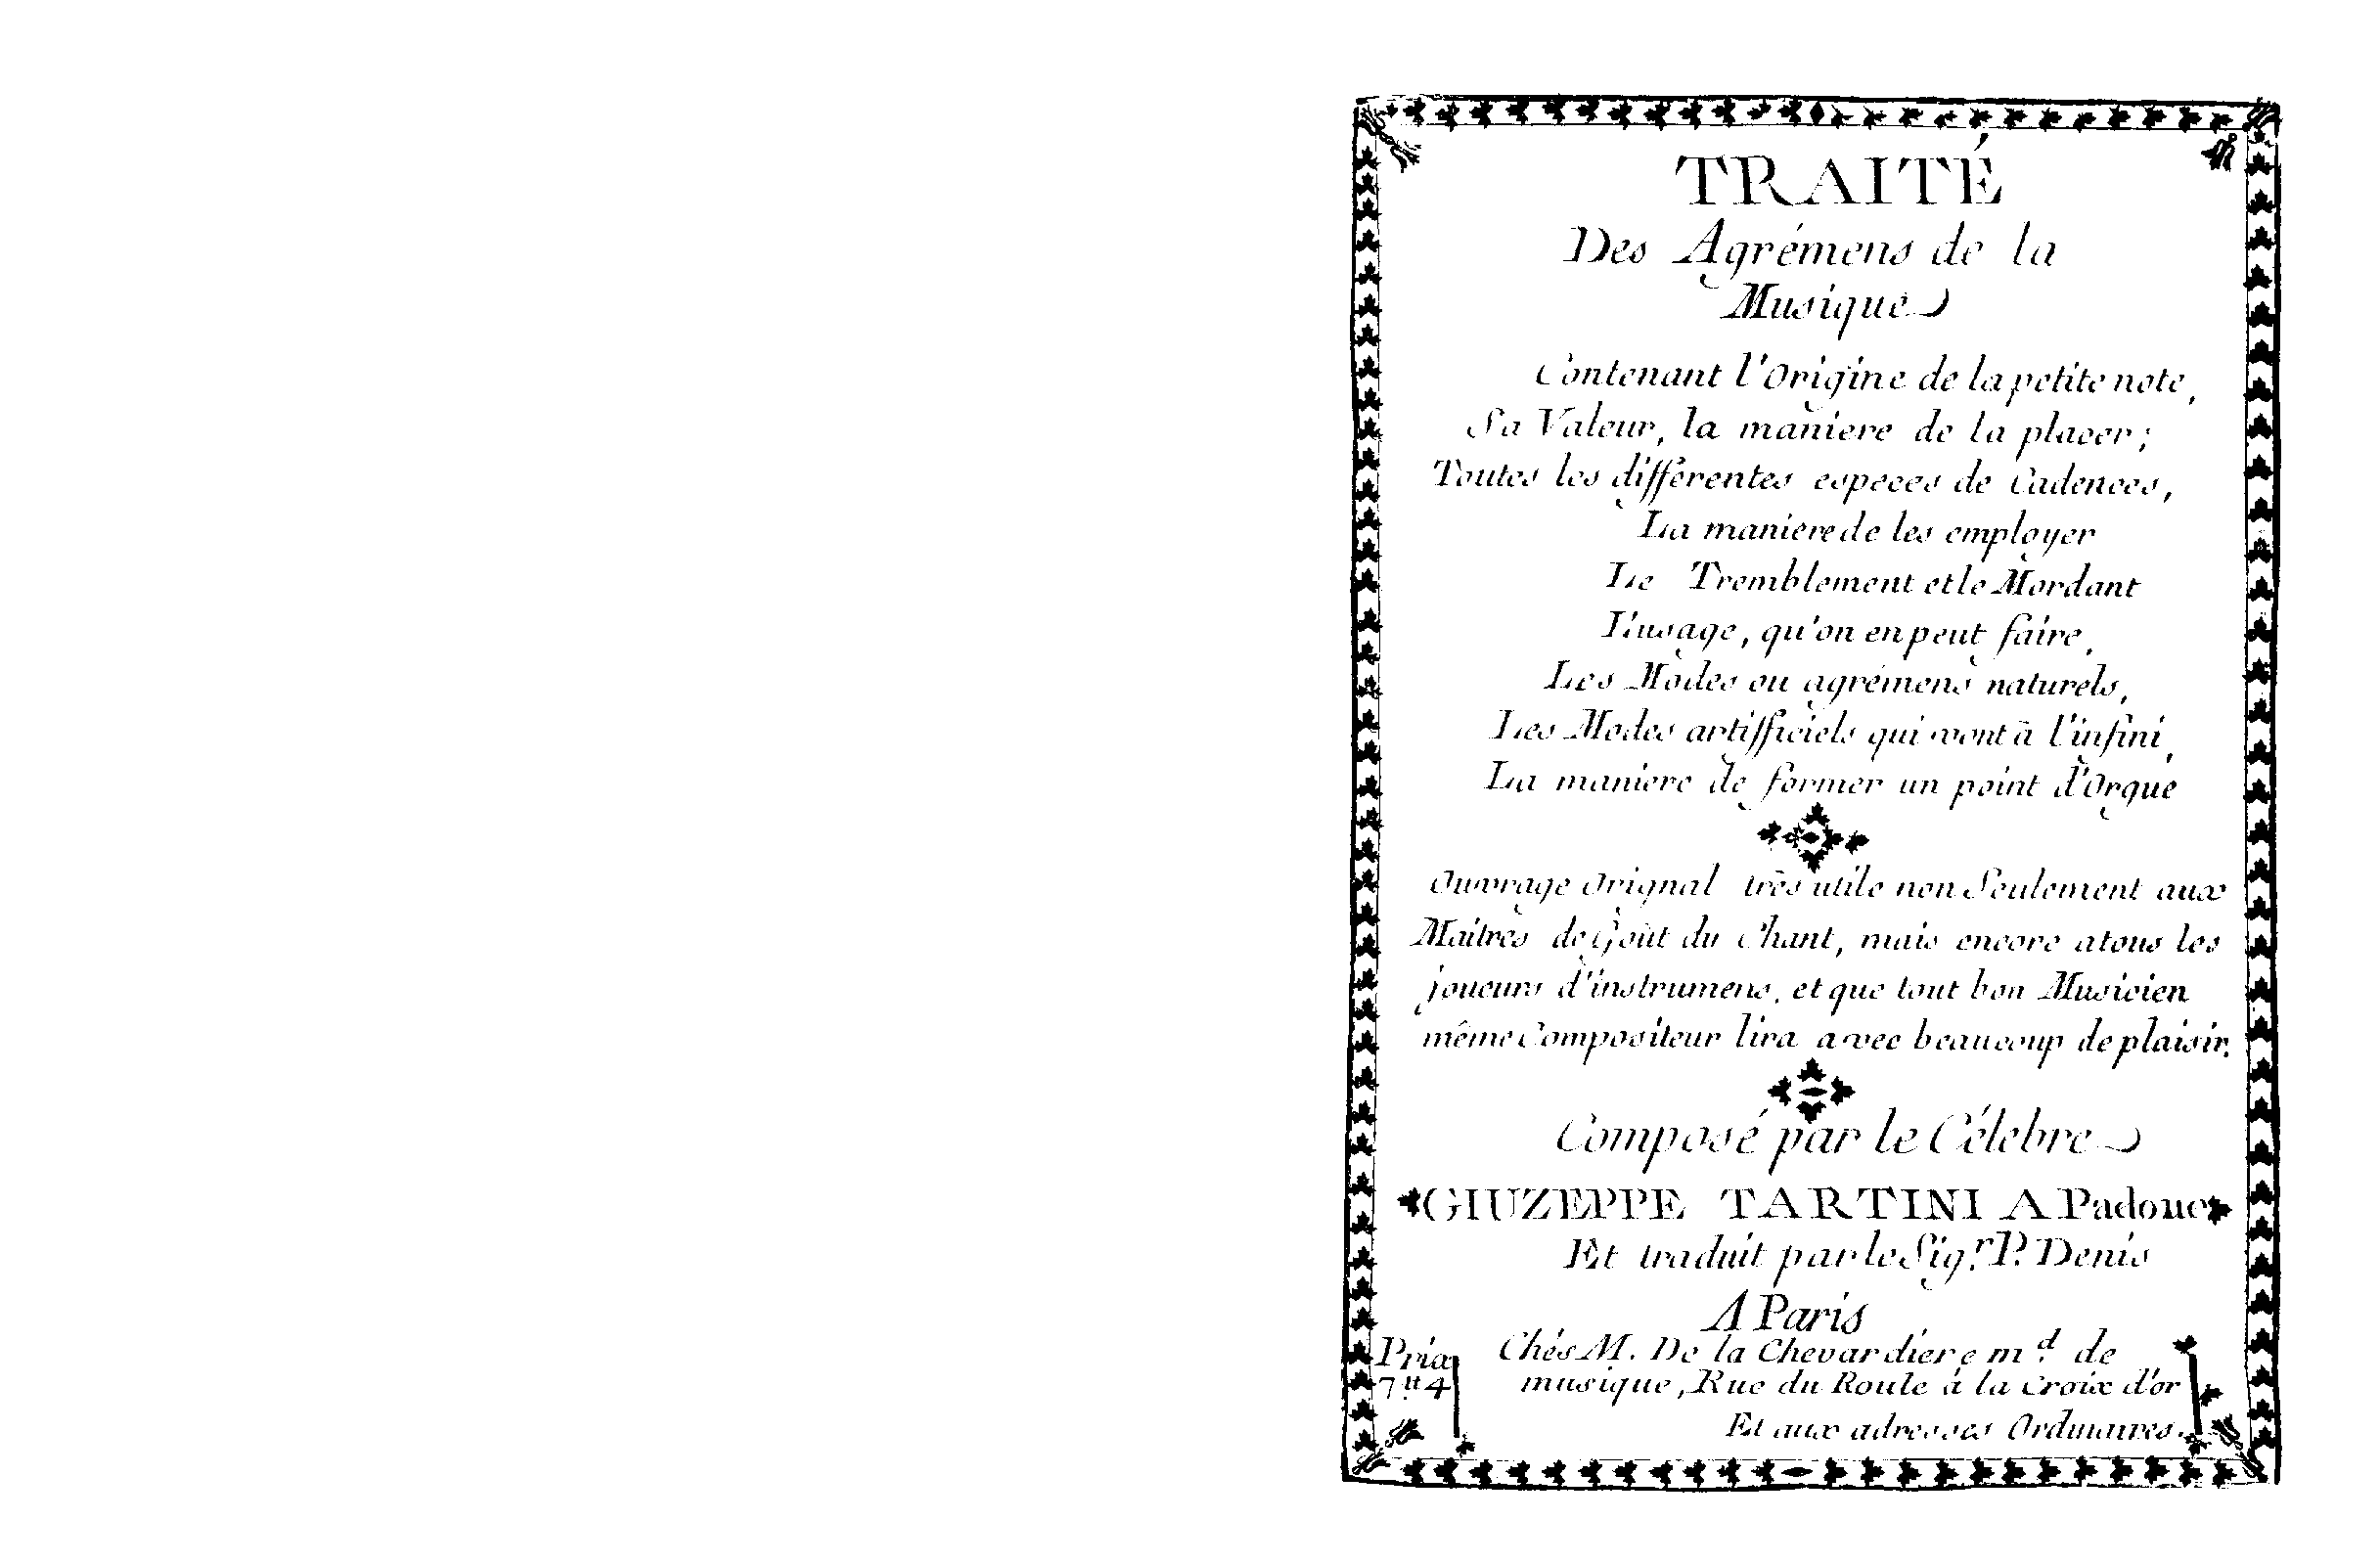 TRAITÉ
Des Agrémens de la
Musique
Contenant l'Origine de la petite note,
Sa Valeur, la maniere de la placer;
Toutes les différentes especes de Cadences,
La maniere de les employer
Le Tremblement et le Mordant
L'usage, qu'on en peut faire,
Les Modes ou agrémens naturels,
Les Modes artifficiels qui vont à l'infini,
La maniere de former un point d'Orgue
Ouvrage Orignal très utile non Seulement aux
Maitres de Goût du Chant, mais encore a tous les
joueurs d'instrumens, et que tout bon Musicien
même Compositeur lira avec beaucoup de plaisir.
Composé par le Célebre
GIUZEPPE TARTINI A Padoue
Et traduit par le Sig.r P. Denis
A Paris
Prix
7tt 4
Chés M. De la Chevardiere m.d de
musique, Rue du Roule à la Croix d'or
Et aux adresses Ordinaires.